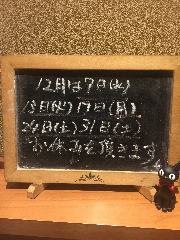 12月は7日(水)
13日(火)19日(月)
24日(土)31日(土)
お休みを頂きます